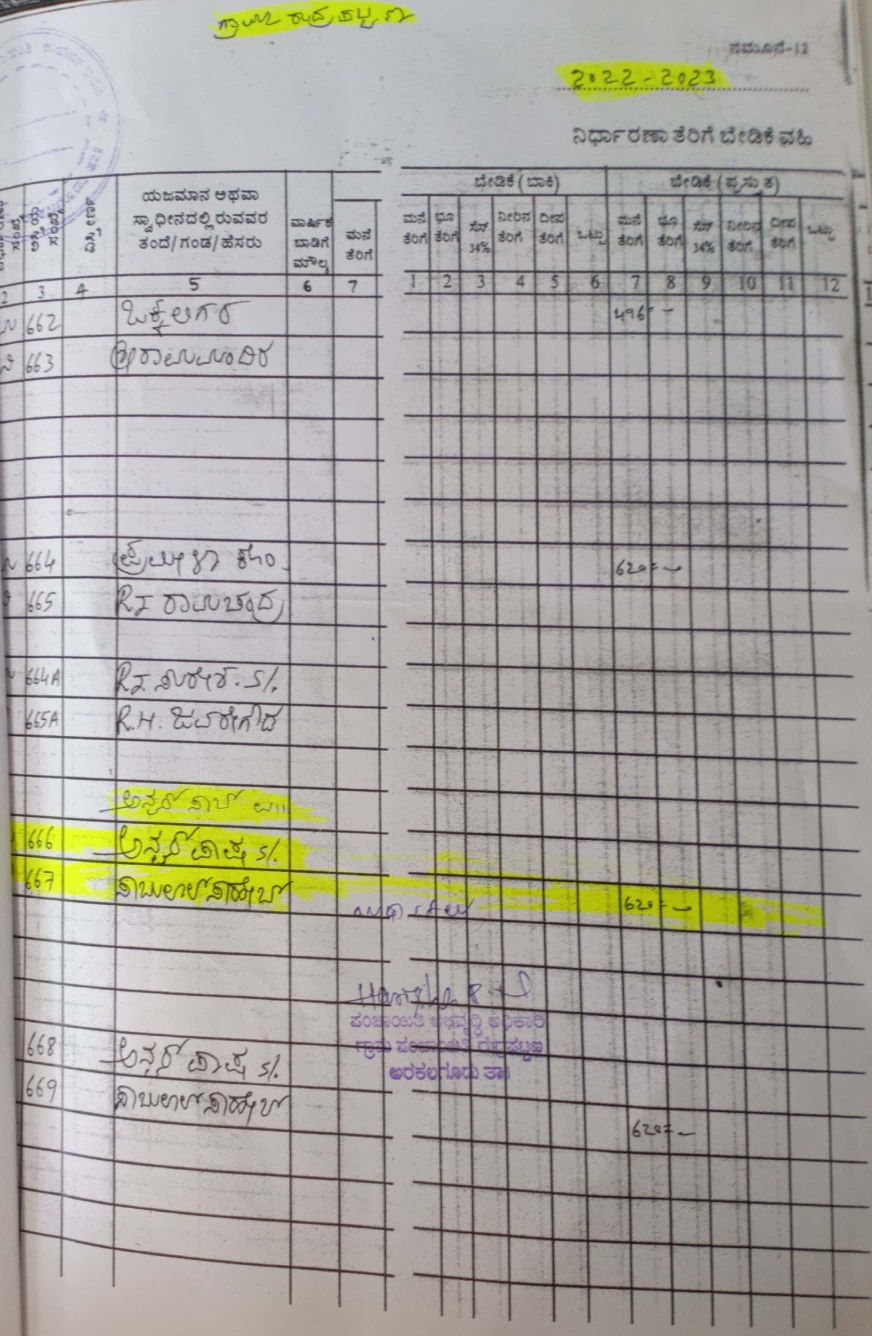 ಗ್ರಾಮ ರುದ್ರಪಟ್ಟಣ
ನಮೂನೆ-12
2022-2023
ನಿರ್ಧಾರಣಾ ತೆರಿಗೆ ಬೇಡಿಕೆ ವಹಿ
ಬೇಡಿಕೆ (ಬಾಕಿ) ಬೇಡಿಕೆ (ಪ್ರಸ್ತುತ)
ಯಜಮಾನ ಅಥವಾ
ಸ್ವಾಧೀನದಲ್ಲಿರುವವರ
ತಂದೆ/ಗಂಡ/ಹೆಸರು
ವಾರ್ಷಿಕ
ಬಾಡಿಗೆ
ಮೌಲ್ಯ
ಮನೆ
ತೆರಿಗೆ
ಮನೆ ತೆರಿಗೆ ಭೂ ತೆರಿಗೆ ಸೆಸ್ 34% ನೀರಿನ ತೆರಿಗೆ ದೀಪ ತೆರಿಗೆ ಒಟ್ಟು ಮನೆ ತೆರಿಗೆ ಭೂ ತೆರಿಗೆ ಸೆಸ್ 34% ನೀರಿನ ತೆರಿಗೆ ದೀಪ ತೆರಿಗೆ ಒಟ್ಟು
2 3 4 5 6 7 1 2 3 4 5 6 7 8 9 10 11 12
662 ಒಕ್ಕಲಿಗರ 496=
663 ಶ್ರೀರಾಮಮಂದಿರ
664 ಪ್ರಮೀಳಾ ಕೋಂ 620=
665 R.J ರಾಮಚಂದ್ರ
664A R.J. ಸುರೇಶ್. S/.
665A R.H. ಜವರೇಗೌಡ
ಅನ್ವರ್ ಸಾಬ್
666 ಅನ್ವರ್ ಪಾಷ S/.
667 ಸಾಬುಲಾಲ್ ಸಾಹೇಬ್ 620=
ಪಂಚಾಯಿತಿ ಅಭಿವೃದ್ಧಿ ಅಧಿಕಾರಿ
ಗ್ರಾಮ ಪಂಚಾಯಿತಿ ರುದ್ರಪಟ್ಟಣ
ಅರಕಲಗೂಡು ತಾ||
668 ಅನ್ವರ್ ಪಾಷ S/.
669 ಸಾಬುಲಾಲ್ ಸಾಹೇಬ್
620=